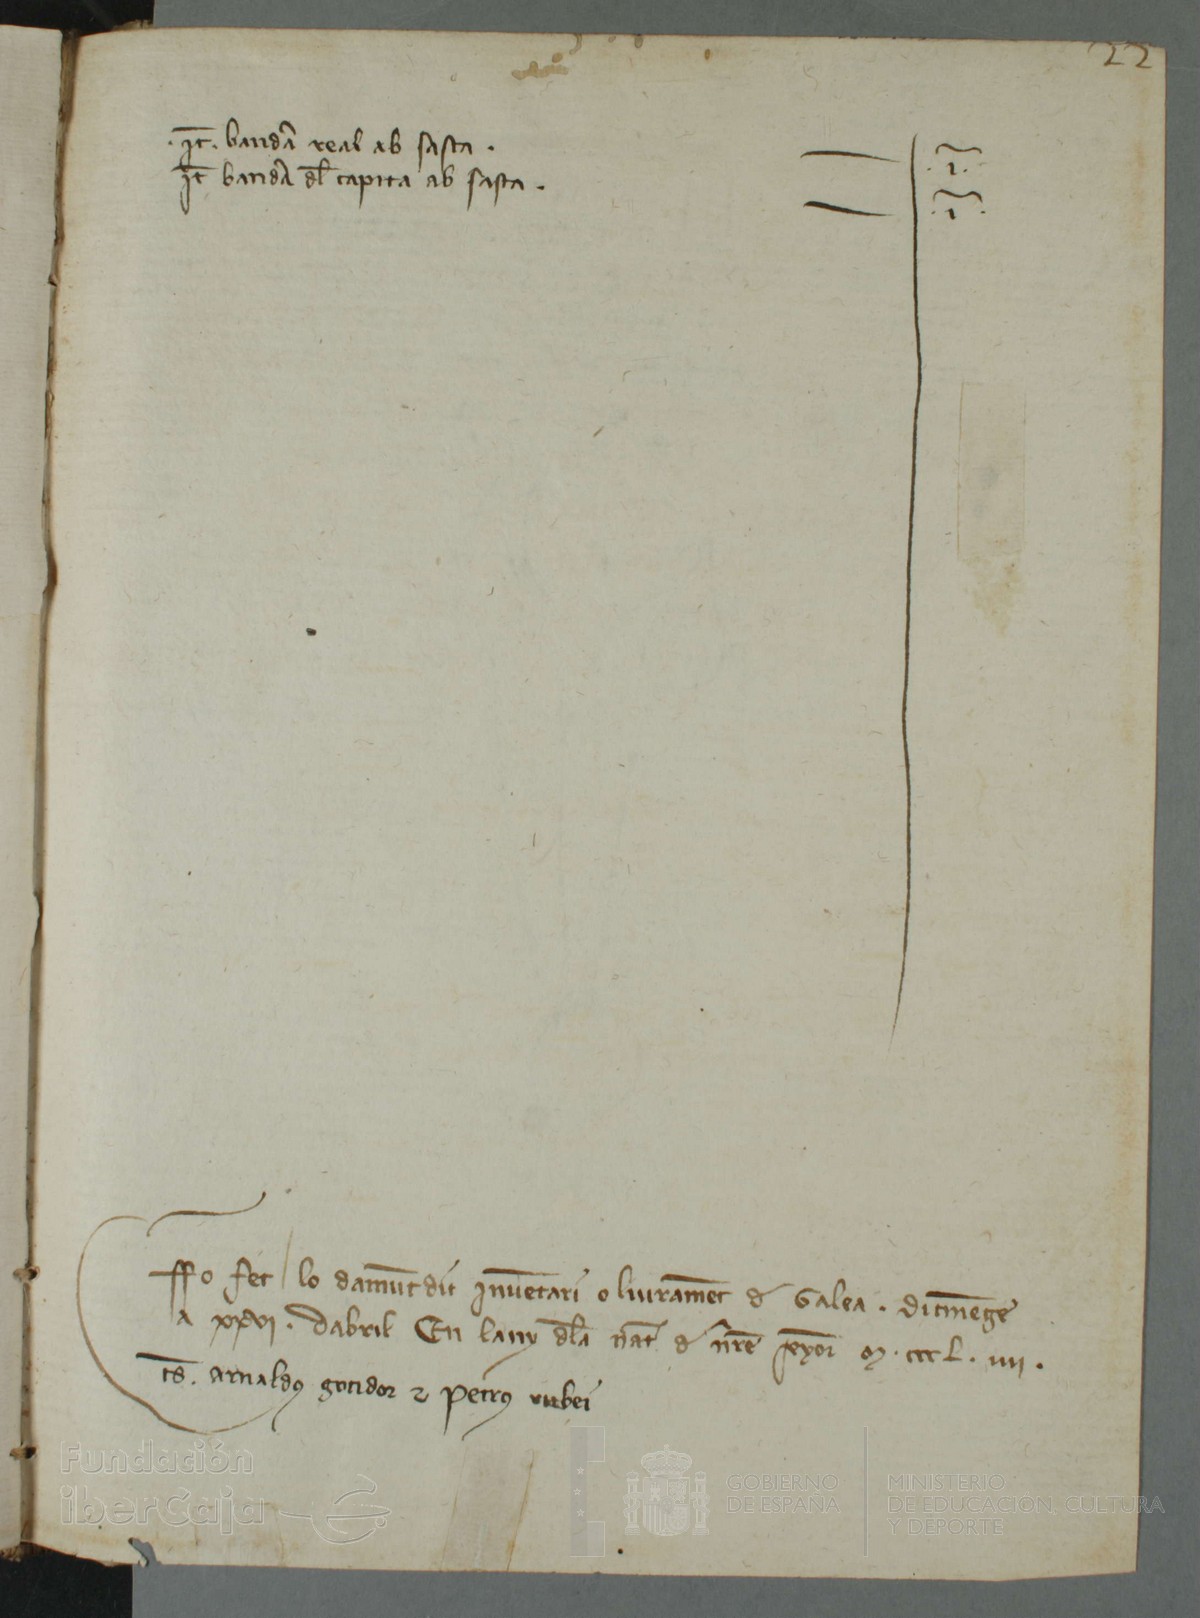 22
.It. bandā real ab sasta .
It bandā dl capita ab sasta .
. i .
. i .
Ffo fet lo damūtdit Inuētari o liuramēt de Galea . dicmēge
a xxvi . dabril En lany dla nat de nr̄e seyor M . cccL . iiii .
ts . Arnaldꝯ gotidor ⁊ Petrꝯ rubei
Fundación
iberCaja
GOBIERNO
DE ESPAÑA
MINISTERIO
DE EDUCACIÓN, CULTURA
Y DEPORTE